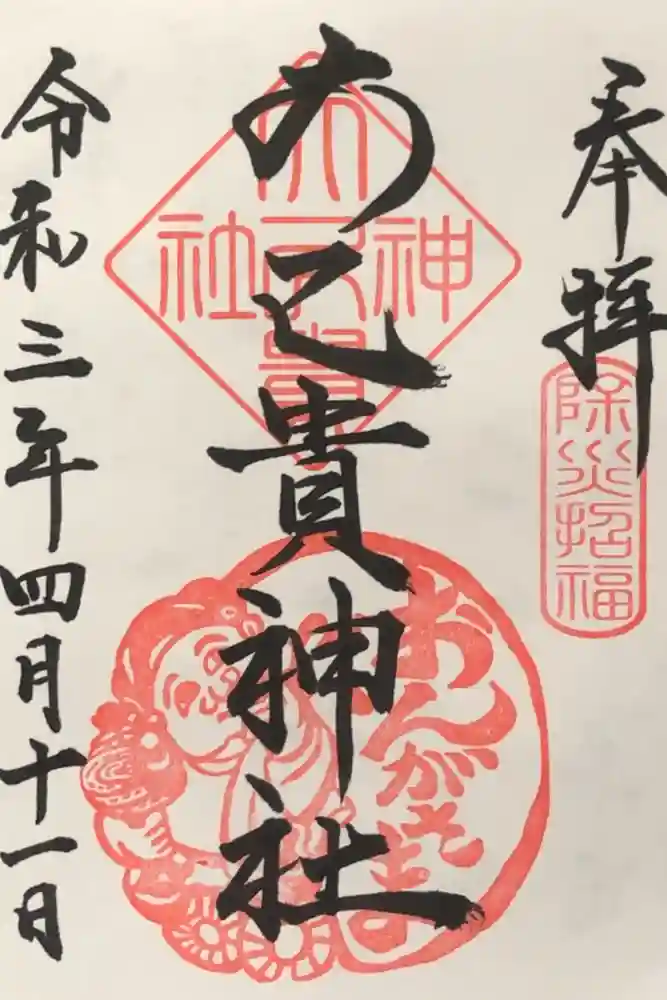 奉拝
除災招福
大己貴神社
大己貴
神
社
おんがさま
令和三年四月十一日